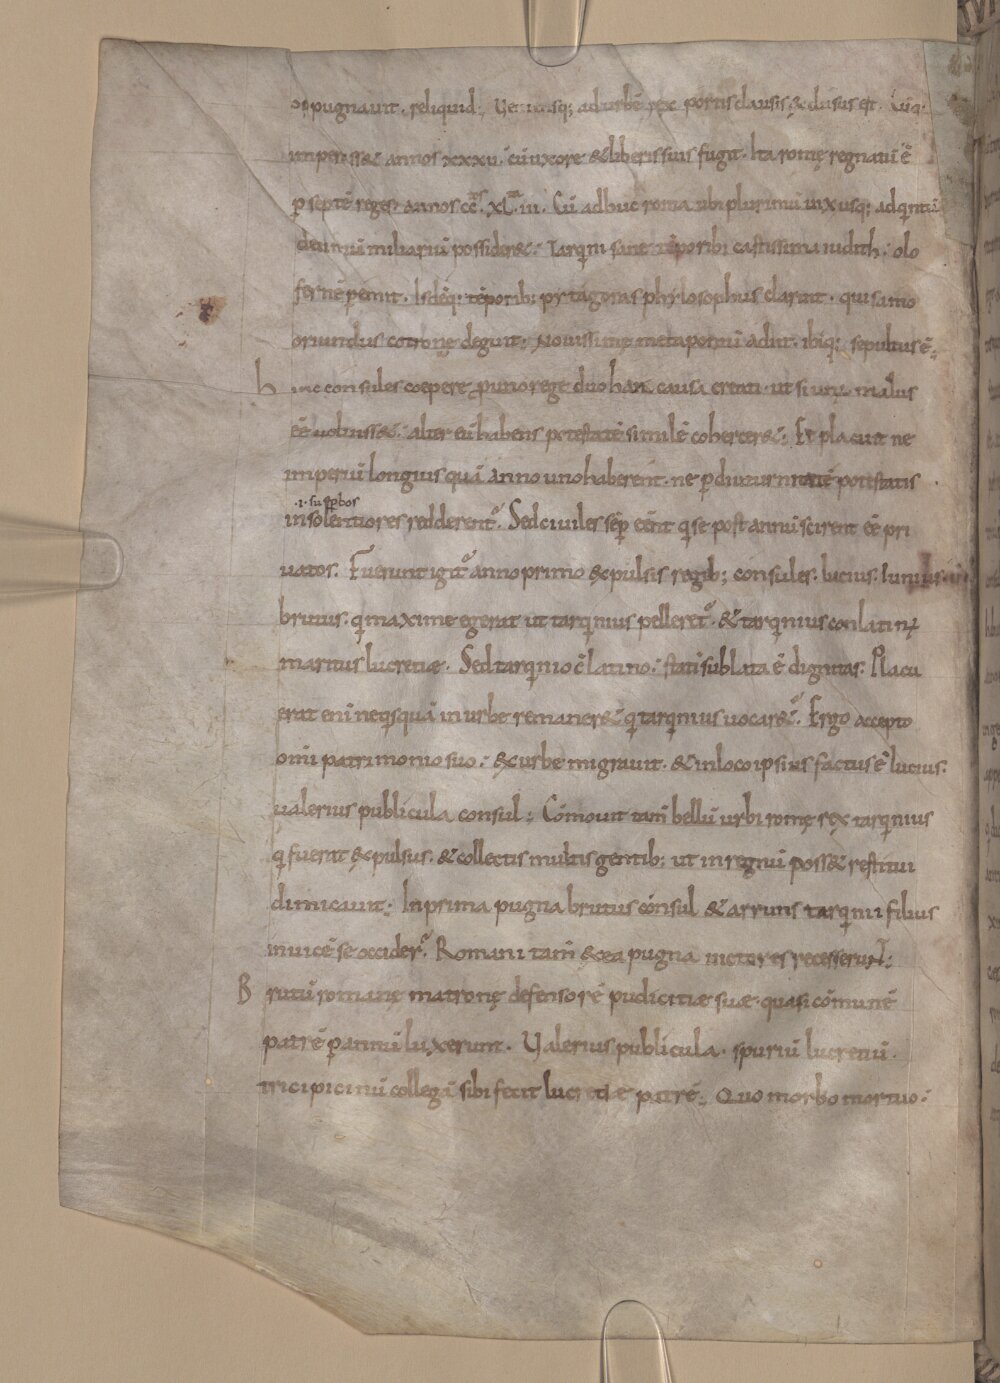 oppugnauit. reliquid; Ueniensq; adurbē rex portis clausis exclusus est. Cūq;
imperass& annos xxxu. cū uxore & liberis suis fugit. Ita romę regnatū ē
p septē reges. annos cc̄. xL. iii. Cū adhuc roma ubi plurimū uix usq; ad qntū
decimū miliariū possider&; Tarqni sane tēporibɩ castissima iudith. olo
fernē pemit. Isdēq; tēporib; pytagoras phylosophus claruit. qui samo
oriundus cotronę deguit; Nouissime metapontū adiit. ibiq; sepultus ē;
hinc consules coepere p uno rege duo hanc causa creati. ut si unus malus
eē uoluiss&. alter eū habens potestatē similē coherc&; Et placuit ne
imperiū longius quā anno uno haberent. ne p diuturnitatē potestatis
.i. supbos
insolentiores redderent. Sed ciuiles sēp eēnt qi se post annū scirent eē pri
uatos. Fuerunt igit anno primo expulsis regib; consules. lucius. Iunius.
brutus. qi maxime egerat ut tarqinius pelleret. & tarqinius conlatinus
maritus lucretiæ. Sed tarqinio c̄latino. stati sublata ē dignitas. Placu
erat eni ne qisquā in urbe remaner& qi tarqinius uocar&. Ergo accepto
omi patrimonio suo. ex urbe migrauit. & in loco ipsius factus ē lucius.
ualerius publicula consul; Cōmouit tam̄ bellū urbi romę rex tarqinius
qi fuerat expulsus. & collectis multis gentib; ut in regnū poss& restitui
dimicauit; In prima pugna brutus cónsul & arruns tarqinii filius
inuicē se occider. Romani tam̄ ex ea pugna uictores recesserunt;
Brutū romanę matronę defensorē pudicitiæ suæ. quasi cōmunē
patrē p annū luxerunt. Ualerius publicula. spuriū lucretiū.
tricipicinū collegā sibi fecit lucretiæ patrē; Quo morbo mortuo.